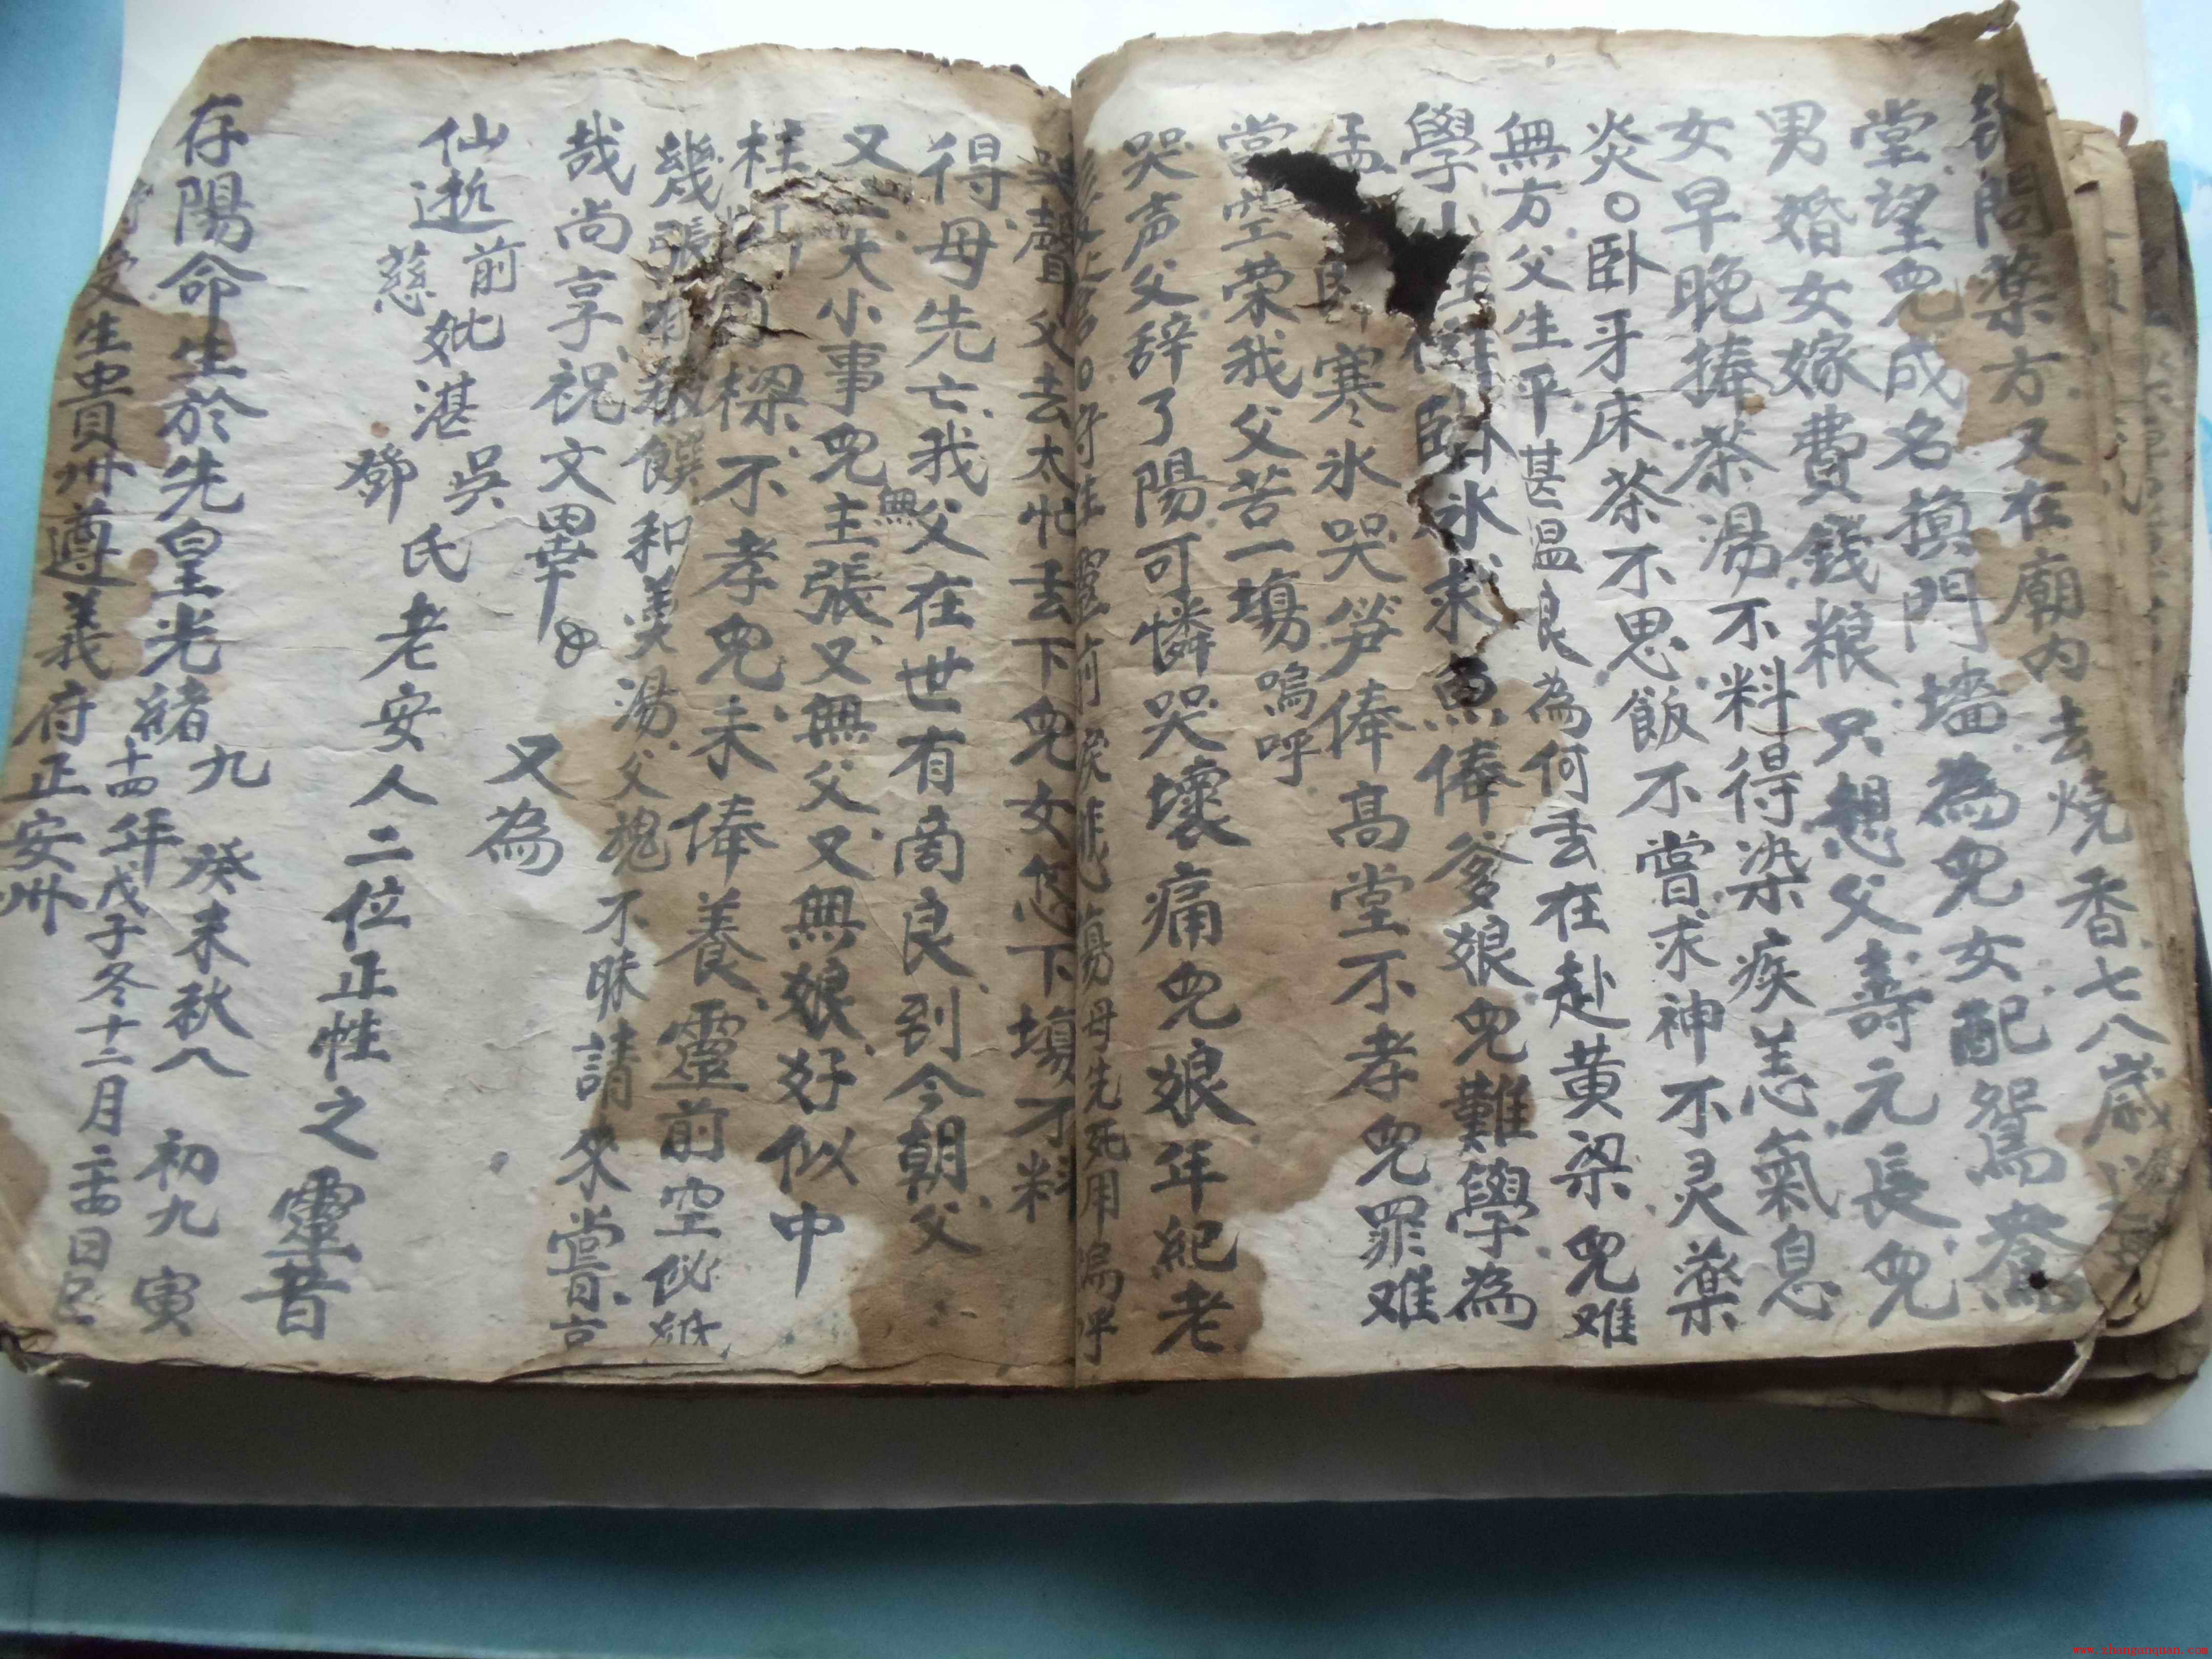 問藥方又在廟內去燒香七八歲
堂望兒成名換門墻為兒女配鴛鴦
男婚女嫁費錢粮只想父壽元長兒
女早晚捧茶湯不料得染疾恙氣息
炎〇卧牙床茶不思飯不嘗求神不灵藥
無方父生平甚温良為何丢在赴黄梁兒难
學小王祥臥氷求魚俸爹娘兒難學為
孟 寒氷哭笋俸高堂不孝兒罪难
當空荣我父苦一塲嗚呼
哭声父辞了陽可憐哭壞痛兒娘年紀老
靈前 母先死用嗚呼
哭聲父去太忙丢下兒女怎下塲不料
得母先亡我父在世有商良到今朝父
又 大小事兒無主張又無父又無娘好似中
柱 樑不孝兒未俸養靈前空似紙
幾張 饌和羹湯父魂不昧請來嘗
哉尚享祝文畢
又為
仙逝前
慈妣湛吳
鄧氏老安人二位正性之靈昔
存陽命生於先皇光緒九年癸未秋八初九寅
十四年戊子冬十二月二十四日
受生貴州遵義府正安州
www.zhangunquan.com